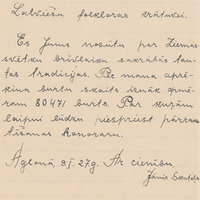 Latviešu folkloras krātuvei.
Es Jums nosūtu par Ziemas
svētku brīvlaiku sakrātās tau-
tas tradicijas. Pēc mana aprē-
ķina burtu skaits iznāk apmē-
ram 80471 burts. Par kuŗām
laipni lūdzu piespriest pārrak-
stīšanas honorāru.
Aglonā 9.I.27.g. Ar cieņību,
Jānis